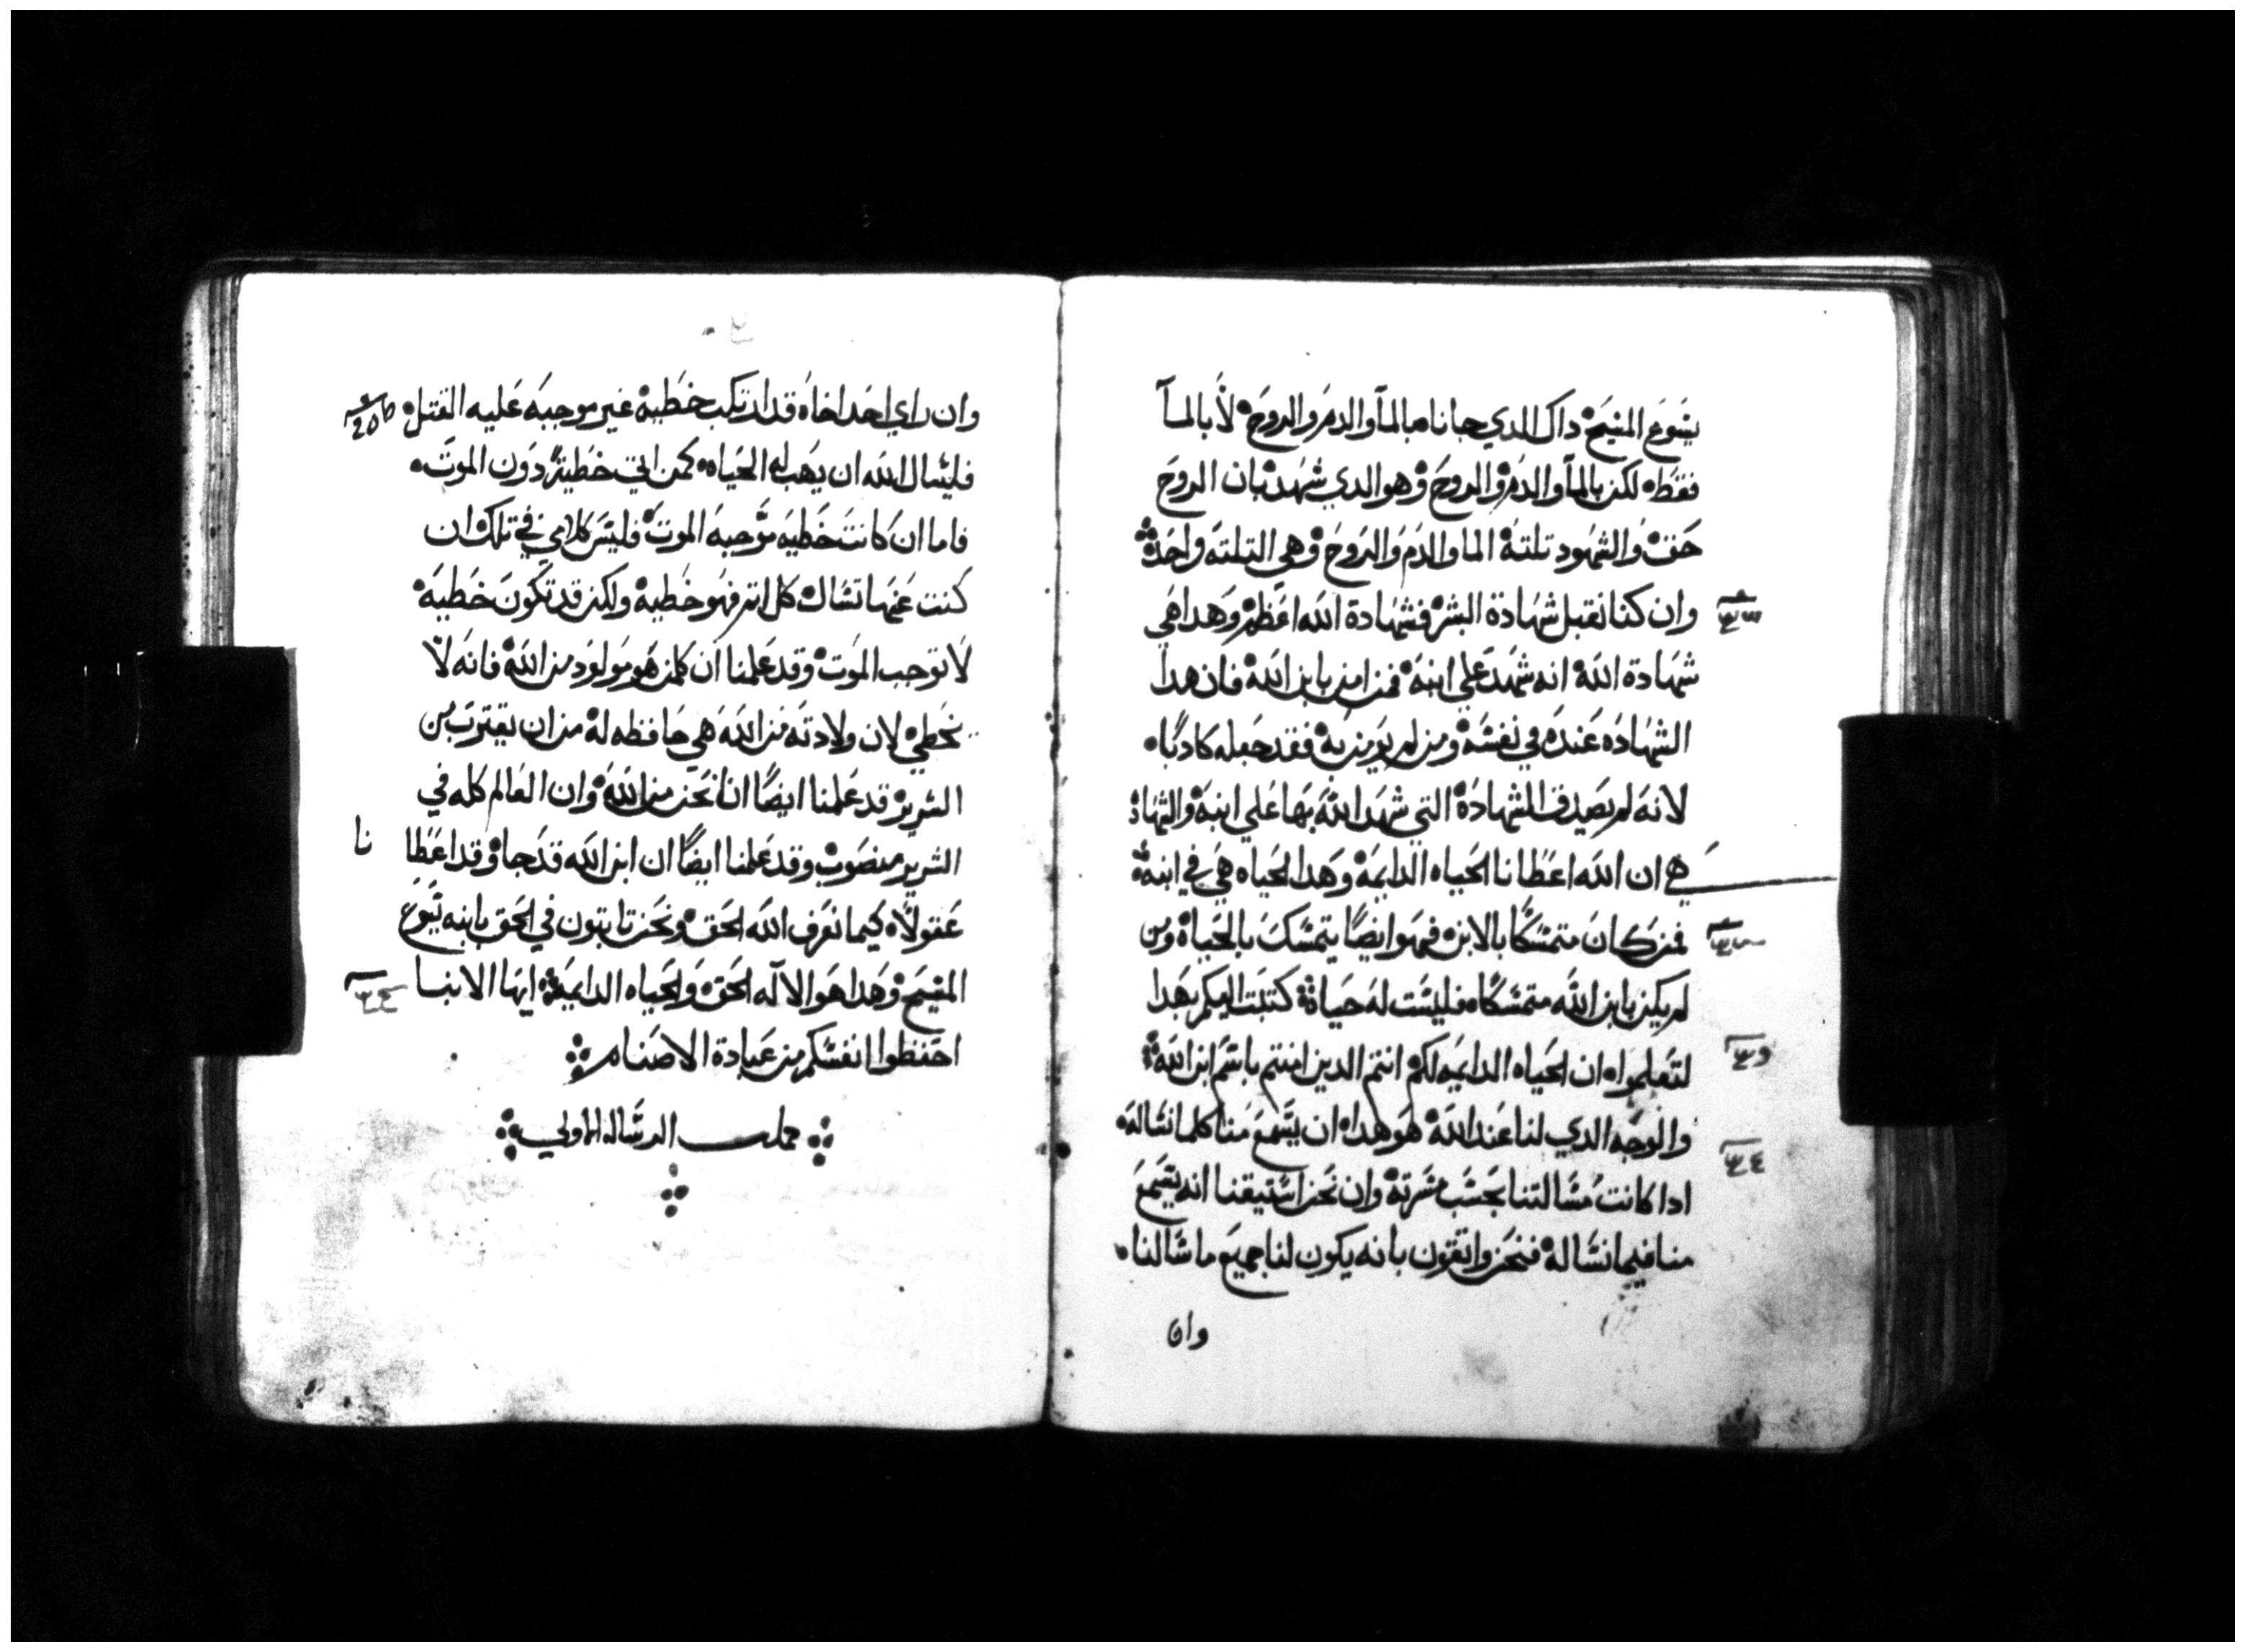 يسوع المسيح داك الدي جانا بالمآ والدم والروح لا بالمآ
فقط لكن بالمآ والدم والروح وهو الدي شهد بان الروح
حق والشهود تلتة الما والدم والروح وهي التلته واحده
وان كنا نقبل شهادة البشر فشهادة الله اعظم وهدا هي
شهادة الله انه شهد علي ابنه فمن امن بابن الله فان هدا
الشهاده عنده في نفسه ومن لم يومن به فقد جعله كادبًا
لانه لم يصدق الشهادة التي شهد الله بها علي ابنه والشهاد
هي ان الله اعطانا الحياه الدايمه وهدا الحياه هي في ابنه
فمن كان متمسكًا بالابن فهو ايضًا يتمسك بالحياه ومن
لم يكن بابن الله متمسكًا فليست له حياة كتبت اليكم بهدا
لتعلموا ان الحياه الدايمه لكم انتم الدين امنتم باسم ابن الله
والوجه الدي لنا عند الله هو هدا ان يسمع منا كلما نساله
ادا كانت مسالتنا بحسب مسرته وان نحن استيقنا انه يسمع
منا فيما نساله فنحن واتقون بانه يكون لنا جميع ما سالنا
وان
وان راي احد اخاه قد ارتكب خطية غير موجبه عليه القتل
فليسال الله ان يهب له الحياه كمن اتي خطية دون الموت
فاما ان كانت خطيه موجبه الموت فليس كلامي في تلك ان
كنت عنها تسال كل اتم فهو خطية ولكن قد تكون خطيه
لا توجب الموت وقد علمنا ان كلمن هو مولود من الله فانه لا
يخطي لان ولادته من الله هي حافظه له من ان يقترب من
الشرير قد علمنا ايضًا اننا نحن من الله وان العالم كله في
الشرير منصوب وقد علمنا ايضًا ان ابن الله قد جا وقد اعطا نا
عقولاً كيما نعرف الله الحق ونحن تابتون في الحق بابنه يسوع
المسيح وهدا هو الاله الحق والحياه الدايمه ايها الابنا
احتفظوا انفسكم من عبادة الاصنام
كملت الرساله الاولي